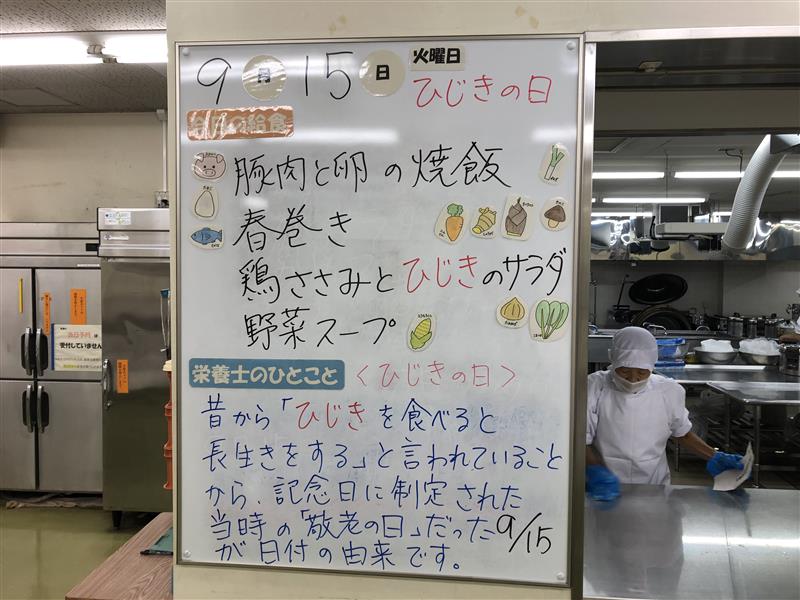 9月15日 火曜日
ひじきの日
今月の給食
豚肉と卵の焼飯
春巻き
鶏ささみとひじきのサラダ
野菜スープ
栄養士のひとこと 〈ひじきの日〉
昔から「ひじきを食べると
長生きをする」と言われていること
から、記念日に制定された
当時の「敬老の日」だった9/15
が日付の由来です。
受付していません